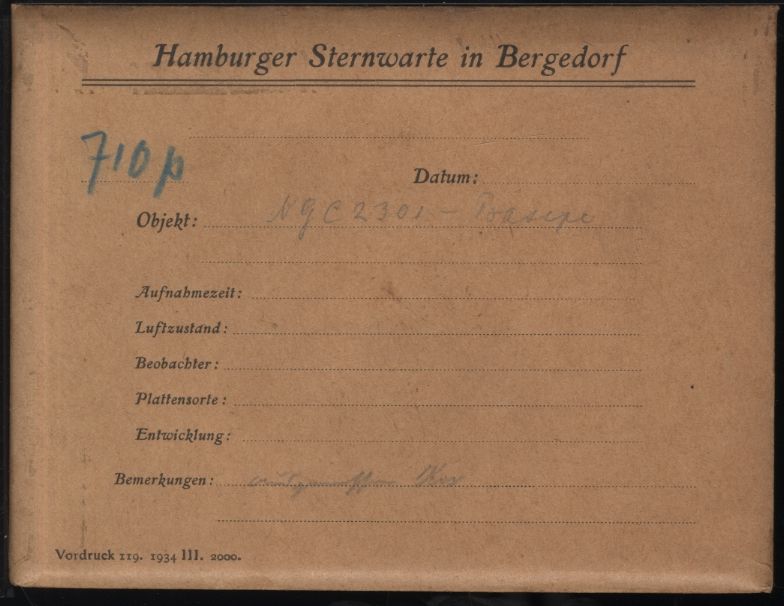 Hamburger Sternwarte in Bergedorf
710 p
Datum:
Objekt: NGC 2301 -
Aufnahmezeit:
Luftzustand:
Beobachter:
Plattensorte:
Entwicklung:
Bemerkungen:
Vordruck 119. 1934 III. 2000.